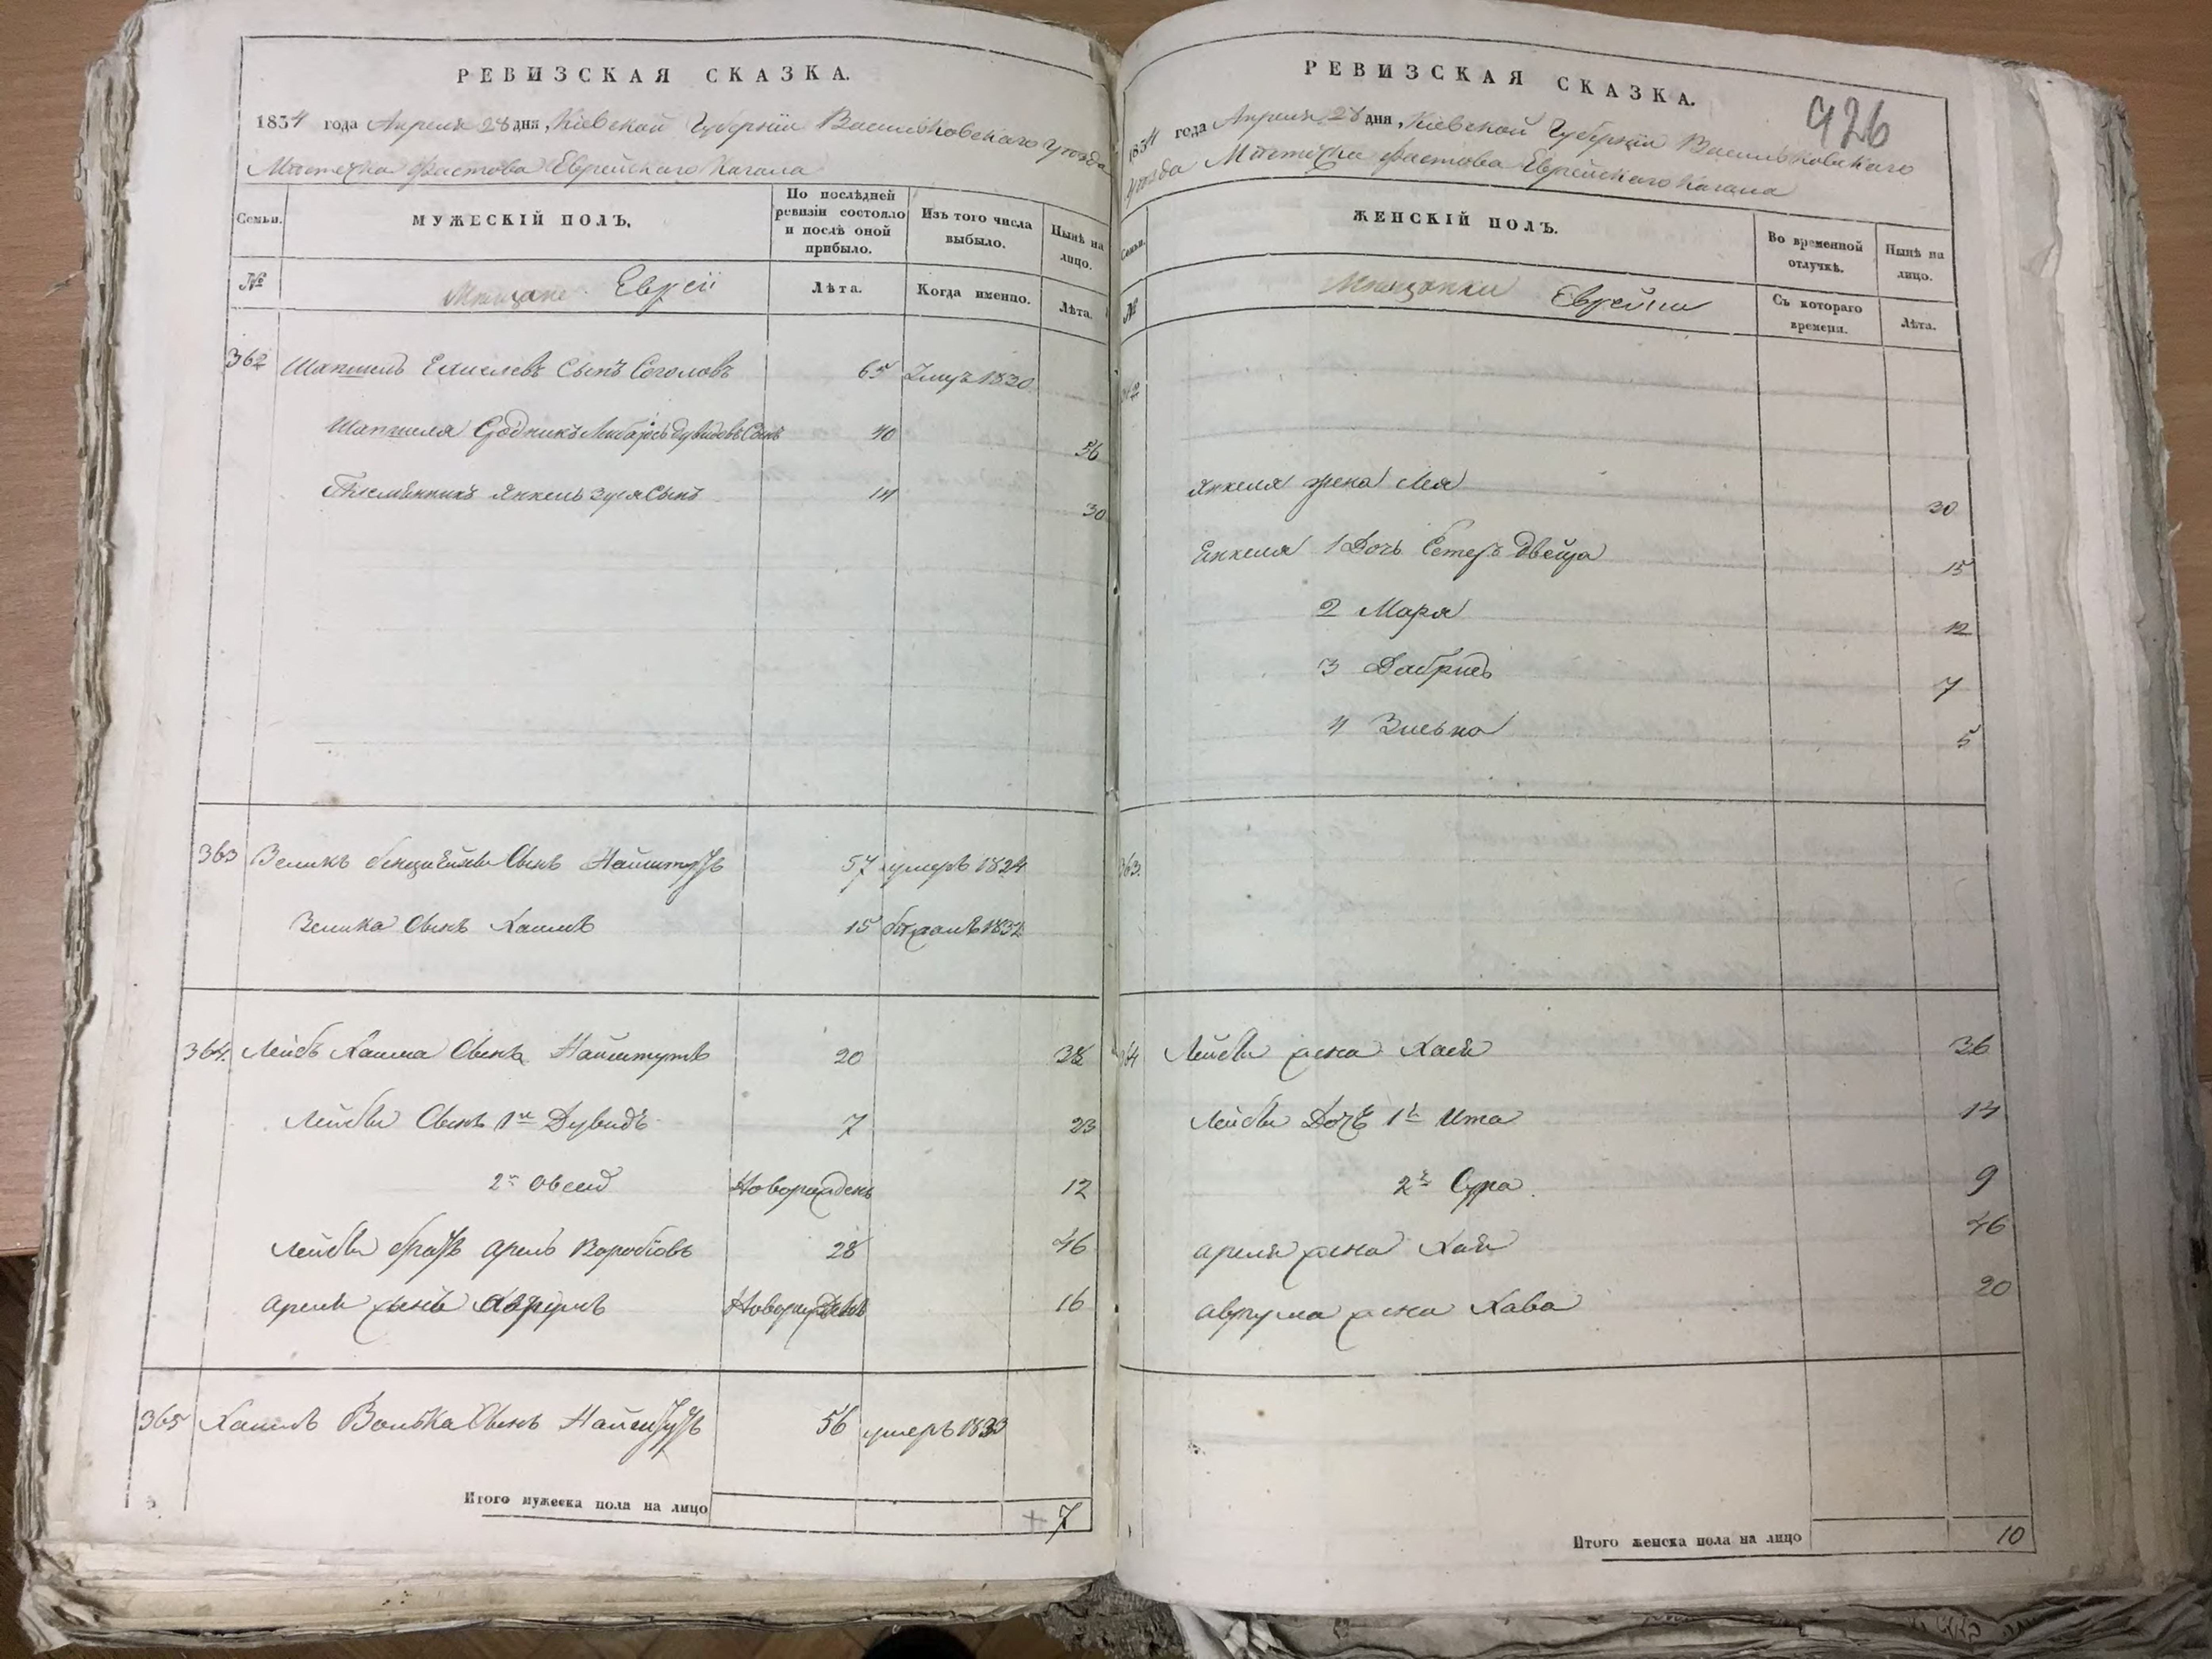 РЕВИЗСКАЯ СКАЗКА.
1834 года Апреля 28 дня, Кіевской Губерніи Васильковского Уезда
Местечка Фастова Еврейского Кагала
Семьи.
МУЖЕСКІЙ ПОЛЪ.
По послѣдней ревизіи состояло и послѣ оной прибыло.
Изъ того числа выбыло.
Нынѣ на лицо.
№
Мещане Евреи
Лѣта.
Когда именно.
Лѣта.
362 Шапшель сынъ Соголовъ 65 1830
Шапшеля Сынъ 40 56
Племянникъ Янкель Зуся Сынъ 14 30
363 Зеликъ Сынъ Найштутъ 57 умеръ 1824
Зелика Сынъ Хаимъ 15 1832
364. Лейбъ Хаима Сынъ Найштутъ 20 38
Лейбы Сынъ 1й Дувидъ 7 23
2й Овсей Новорожденъ 12
Лейбы братъ Арель Воробіовъ 28 46
Ареля сынъ Аврумъ Новорожденъ 16
365 Хаимъ Волька Сынъ Найштутъ 56 умеръ 1833
Итого мужеска пола на лицо 7
РЕВИЗСКАЯ СКАЗКА.
926
1834 года Апреля 28 дня, Кіевской Губерніи Васильковского
Уезда Местечка Фастова Еврейского Кагала
Семьи.
ЖЕНСКІЙ ПОЛЪ.
Во временной отлучкѣ.
Нынѣ на лицо.
№
Мещанки Еврейки
Съ котораго времени.
Лѣта.
362
Янкеля жена Лея 30
Енкеля 1 Дочь Двейра 15
2 Мара 12
3 Добришъ 7
4 Зиська 5
363.
364 Лейбы жена Хая 36
Лейбы Дочь 1я Ита 14
2я Сура. 9
Ареля жена Хая 46
Аврума жена Хава 20
Итого женска пола на лицо 10